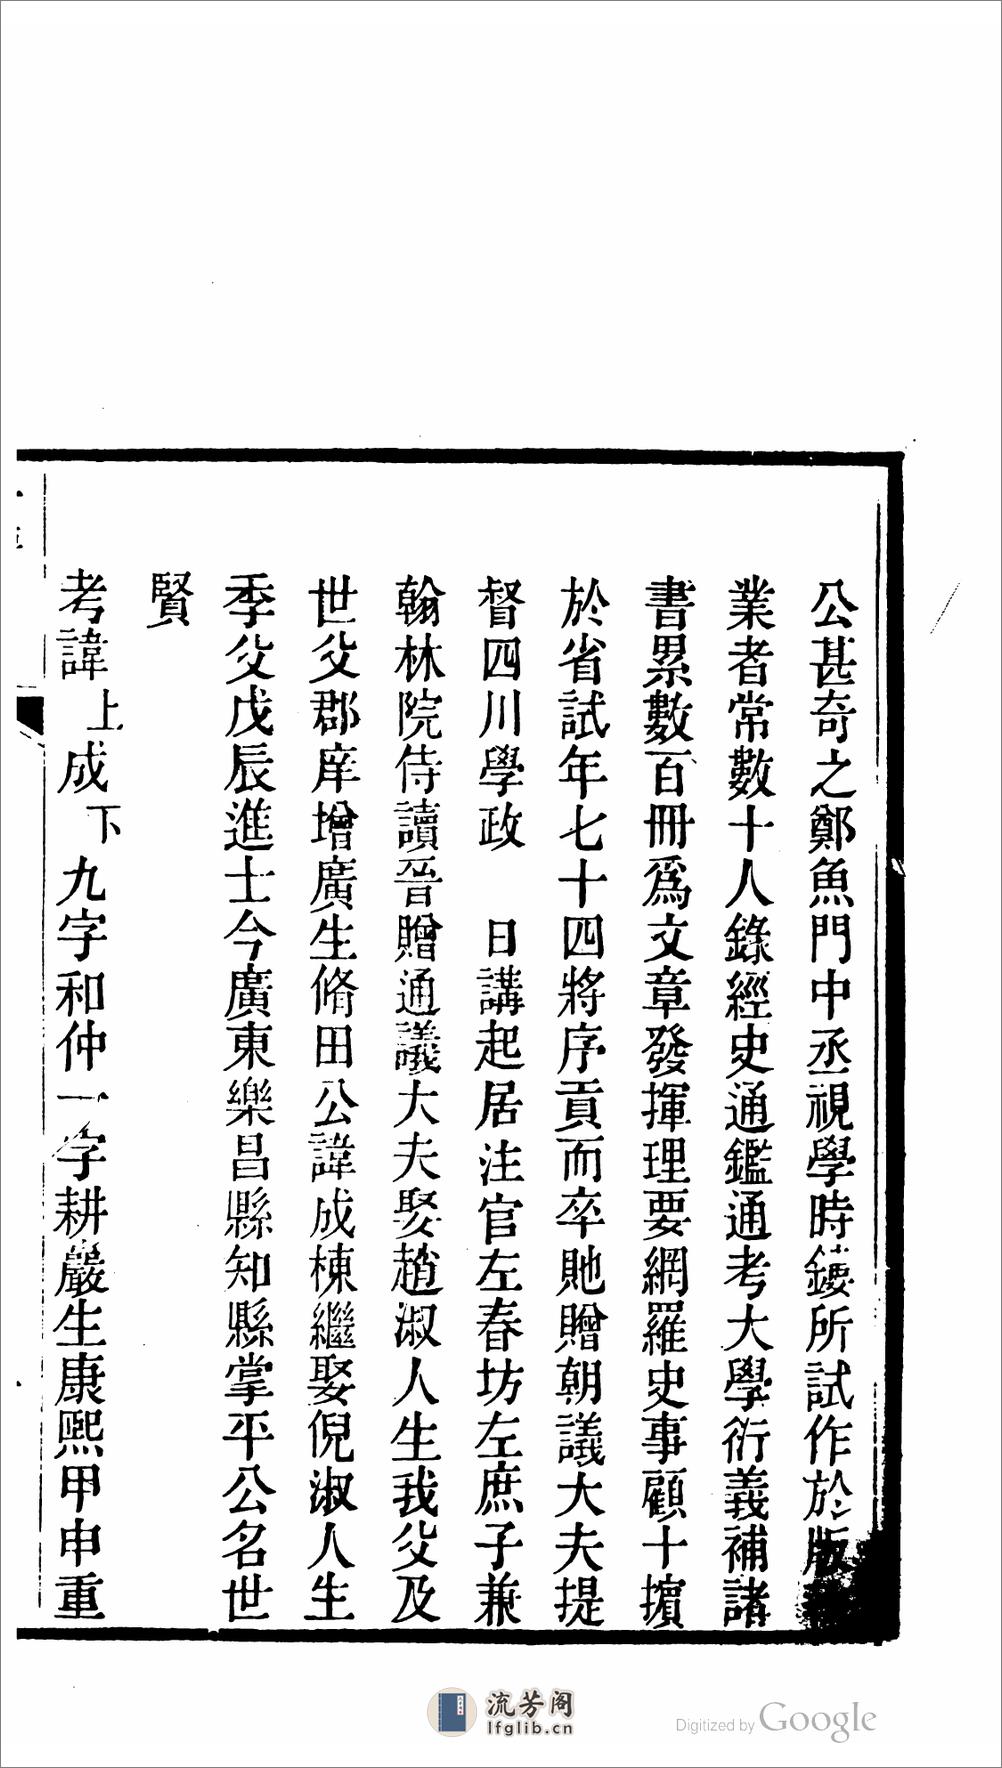 公甚奇之鄭魚門中丞視學時鏤所試作於版
業者常數十人錄經史通鑑通考大學衍義補諸
書累數百冊爲文章發揮理要網羅史事顧十擯
於省試年七十四將序貢而卒貤贈朝議大夫提
督四川學政　日講起居注官左春坊左庶子兼
翰林院侍讀晉贈通議大夫娶趙淑人生我父及
世父郡庠增廣生脩田公諱成棟繼娶倪淑人生
季父戊辰進士今廣東樂昌縣知縣掌平公名世
賢
考諱上成下九字和仲一字耕巖生康熙甲申重
流芳阁
lfglib.cn
Digitized by Google